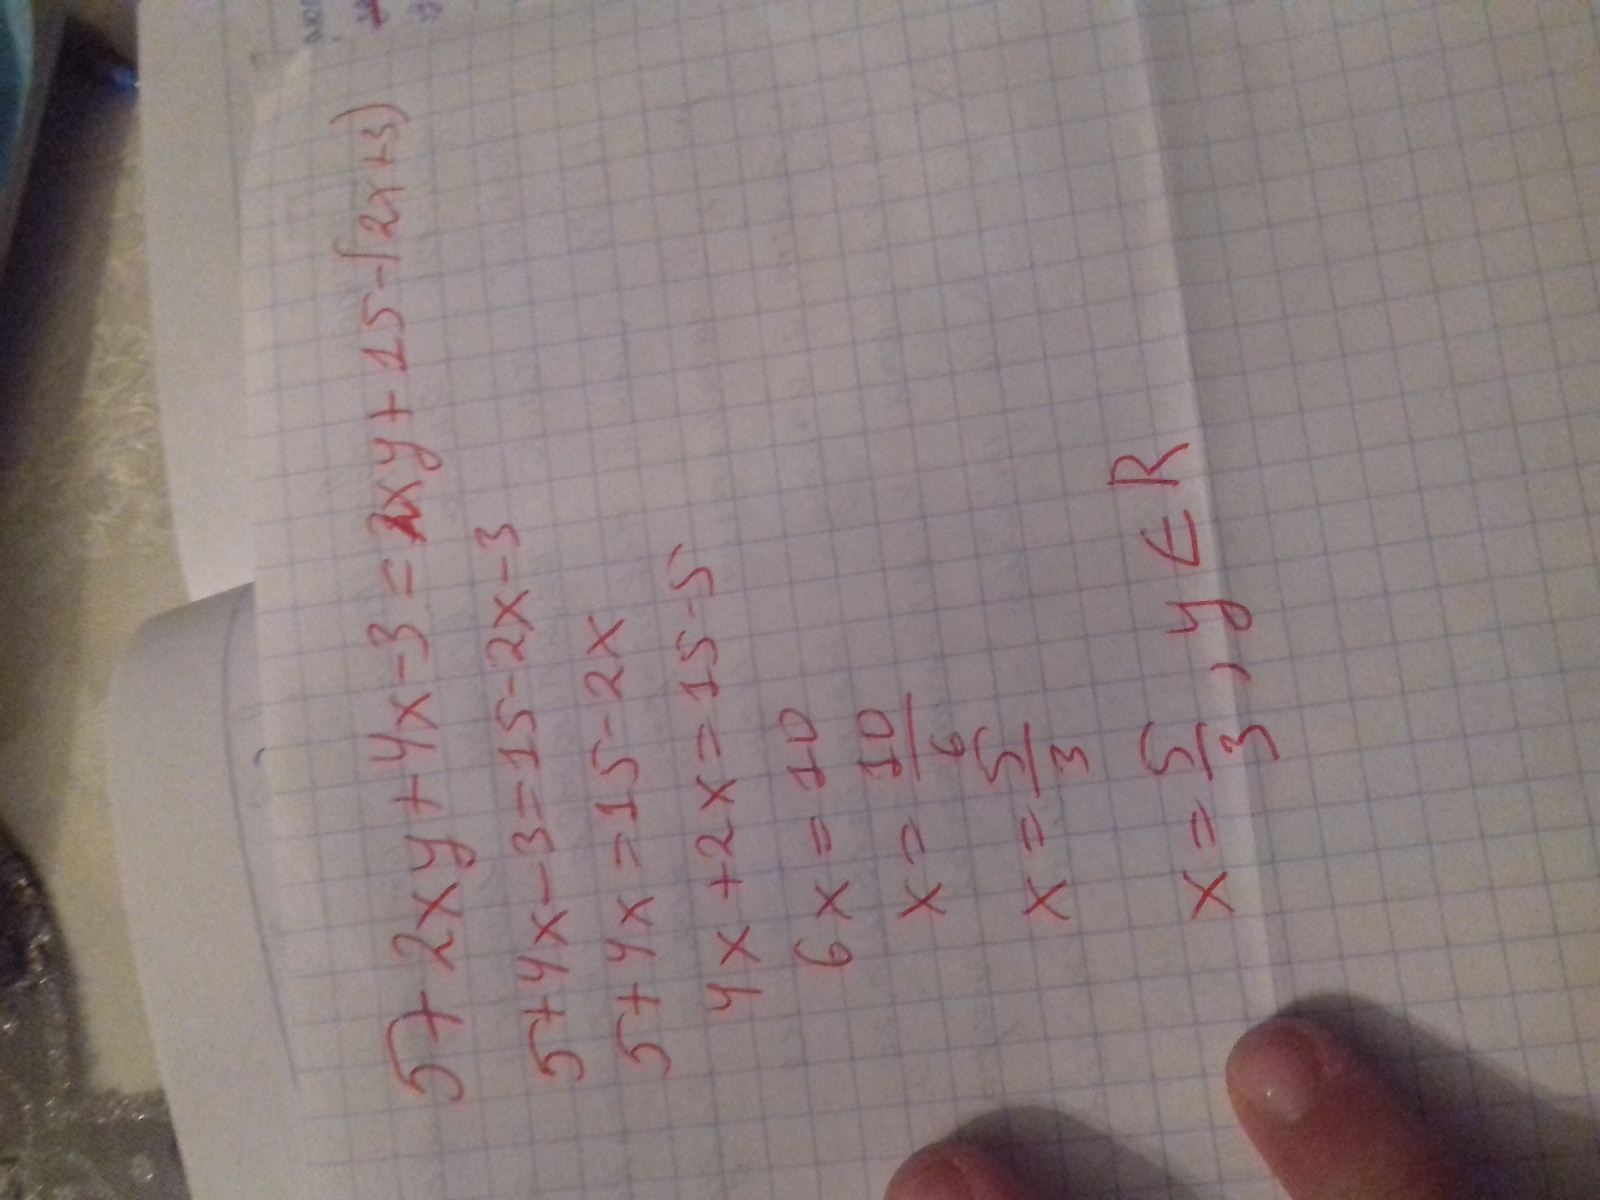 5+2xy+4x-3=2xy+15-(2x+3)
5+4x-3=15-2x-3
5+4x=15-2x
4x+2x=15-5
6x=10
x=10/6
x=5/3
x=5/3, y∈R